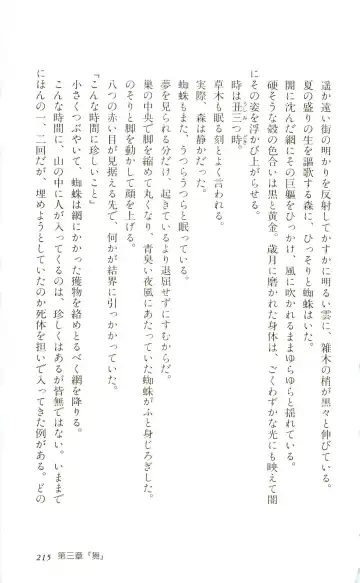 遥か遠い街の明かりを反射してかすかに明るい雲に、雑木の梢が黒々と伸びている。
夏の盛りの生を謳歌する森に、ひっそりと蜘蛛はいた。
闇に沈んだ網にその巨軀をひっかけ、風に吹かれるままゆらゆらと揺れている。
硬そうな殻の色合いは黒と黄金。歳月に磨かれた身体は、ごくわずかな光にも映えて闇
にその姿を浮かび上がらせる。
時は丑三つ時。
うしみ
どき
草木も眠る刻とよく言われる。
実際、森は静かだった。
蜘蛛もまた、うつらうつらと眠っている。
夢を見られる分だけ、起きているより退屈せずにすむからだ。
巣の中央で脚を縮めて丸くなり、青臭い夜風にあたっていた蜘蛛がふと身じろぎした。
のそりと脚を動かして顔を上げる。
八つの赤い目が見据える先で、何かが結界に引っかかっていた。
「こんな時間に珍しいこと」
小さくつぶやいて、蜘蛛は網にかかった獲物を絡めとるべく網を降りる。
こんな時間に、山の中に人が入ってくるのは、珍しくはあるが皆無ではない。いままで
にほんの一、二回だが、埋めようとしていたのか死体を担いで入ってきた例がある。どの
215 第三章「舞」